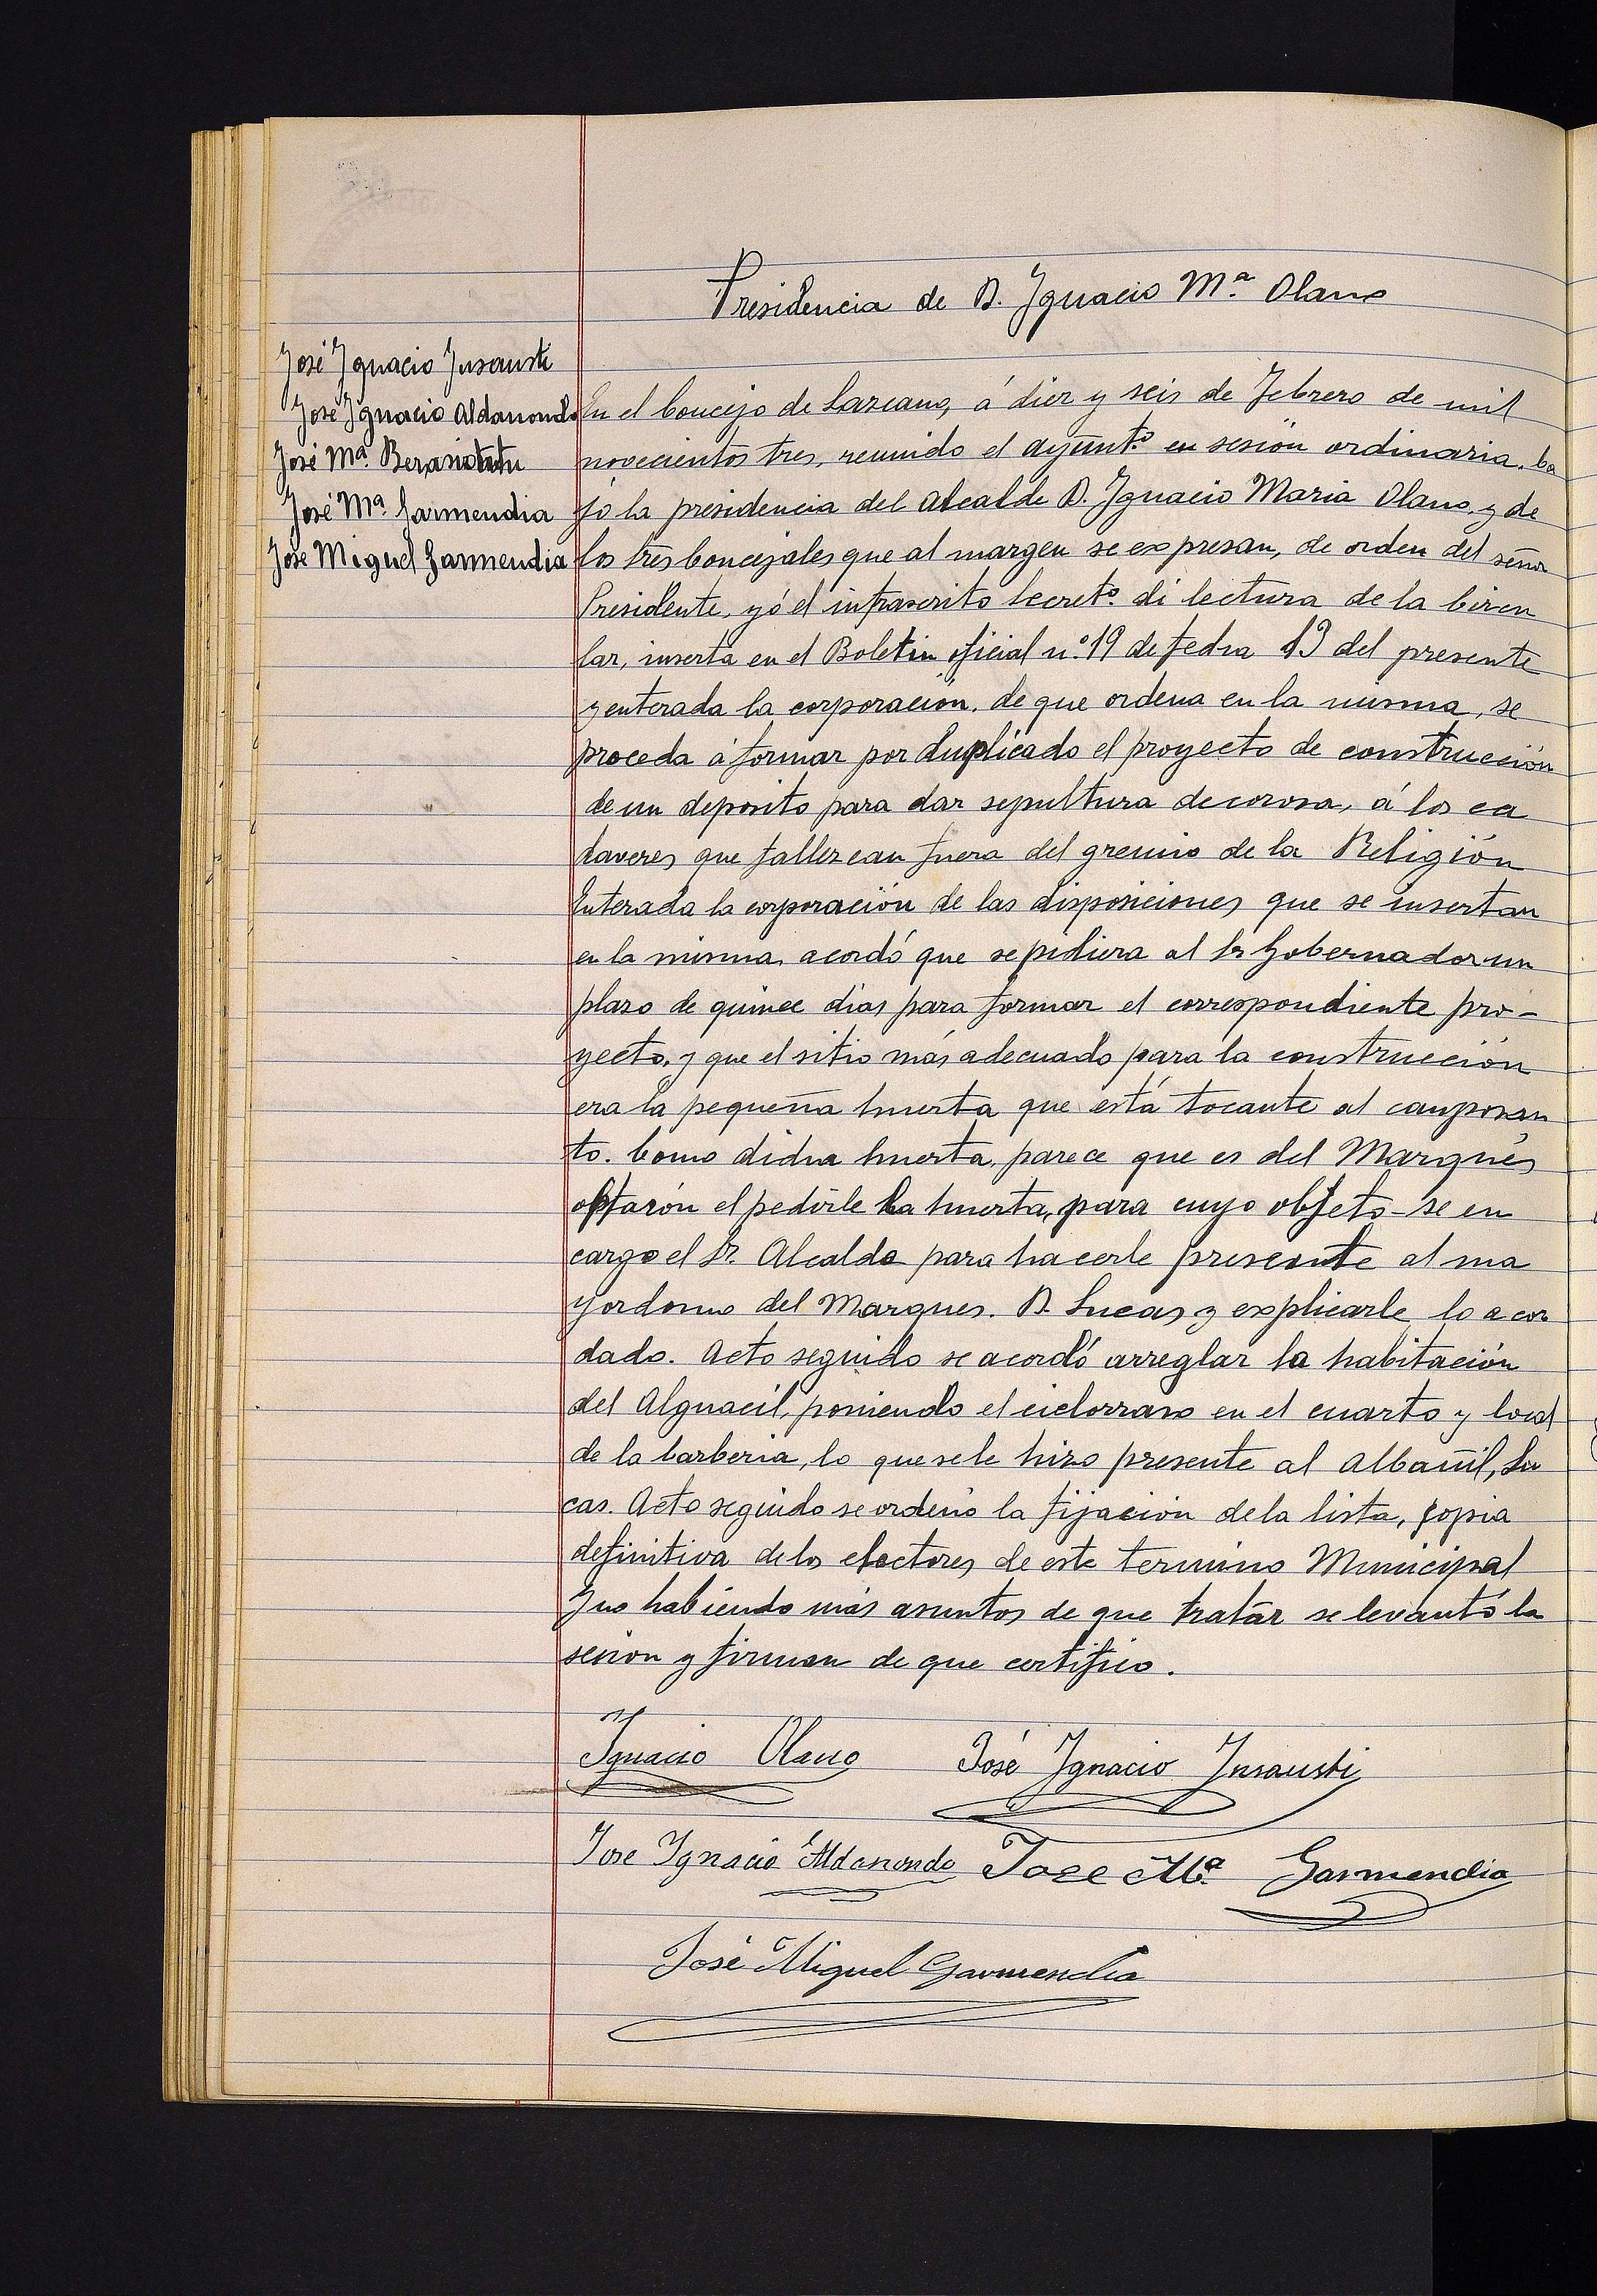 Presidencia de D. Ygnacio Mª Olano
José Ygnacio Ynsausti
José Ygnacio Aldanondo
José Mª
José Mª Garmendia
José Miguel Garmendia
En el Concejo de Lazcano, á diez y seis de Febrero de mil
novecientos tres, reunido el ayuntº en sesión ordinaria, ba
jo la presidencia del Alcalde D. Ygnacio Maria Olano, y de
los tres Concejales que al margen se expresan, de orden del señor
Presidente, yó el infrascrito Secretº di lectura de la Circu
lar, inserta en el Boletin oficial nº 19 de fecha 13 del presente
y enterada la corporación, de que ordena en la misma, se
proceda á formar por duplicado el proyecto de construcción
de un deposito para dar sepultura decorosa, á los ca
daveres que fallezcan fuera del gremio de la Religión
Enterada la corporación de las disposiciones que se insertan
en la misma, acordó que se pidiera al Sr Gobernador un
plazo de quince dias para formar el correspondiente pro-
yecto, y que el sitio más adecuado para la construcción
era la pequeña huerta que está tocante al camposan
to. Como dicha huerta, parece que es del Marqués
optarón el pedirle la huerta, para cuyo objeto se en
cargo el Sr. Alcalde para hacerle presente al ma
yordomo del Marques. D. Lucas y explicarle lo acor
dado. Acto seguido se acordó arreglar la habitación
del Alguacil, poniendo el cielorraso en el cuarto y local
de la barberia, lo que se le hizo presente al Albañil, Lu
cas. Acto seguido se ordenó la fijación de la lista, copia
definitiva de los electores de este termino Municipal
Y no habiendo más asuntos de que tratar se levantó la
sesion y firman de que certifico.
Ygnacio Olano José Ygnacio Ynsausti
Jose Ygnacio Aldanondo Jose Mª Garmendia
José Miguel Garmendia